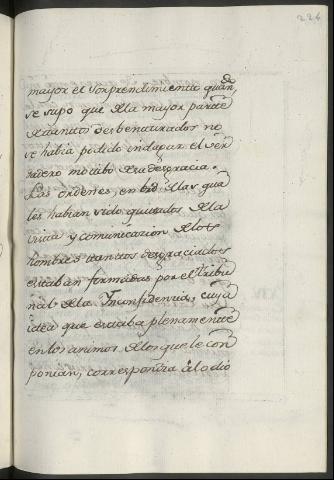 224
mayor el Sorprendimiento quan,do
se supo que dela mayor partte
de tanttos desbenturados no
se habia podido indagar el ver
dadero motibo de su desgracia.
Las ordenes, en bd. delas qua
les habian sido quitados dela
vista y comunicazion delos
hombres tanttos desgraciados
estaban formadas por el Tribu
nal dela Ynconfidenzia, cuya
idea que estaba plenamentte
en los animos delos que le con
ponian, correspondia al odio